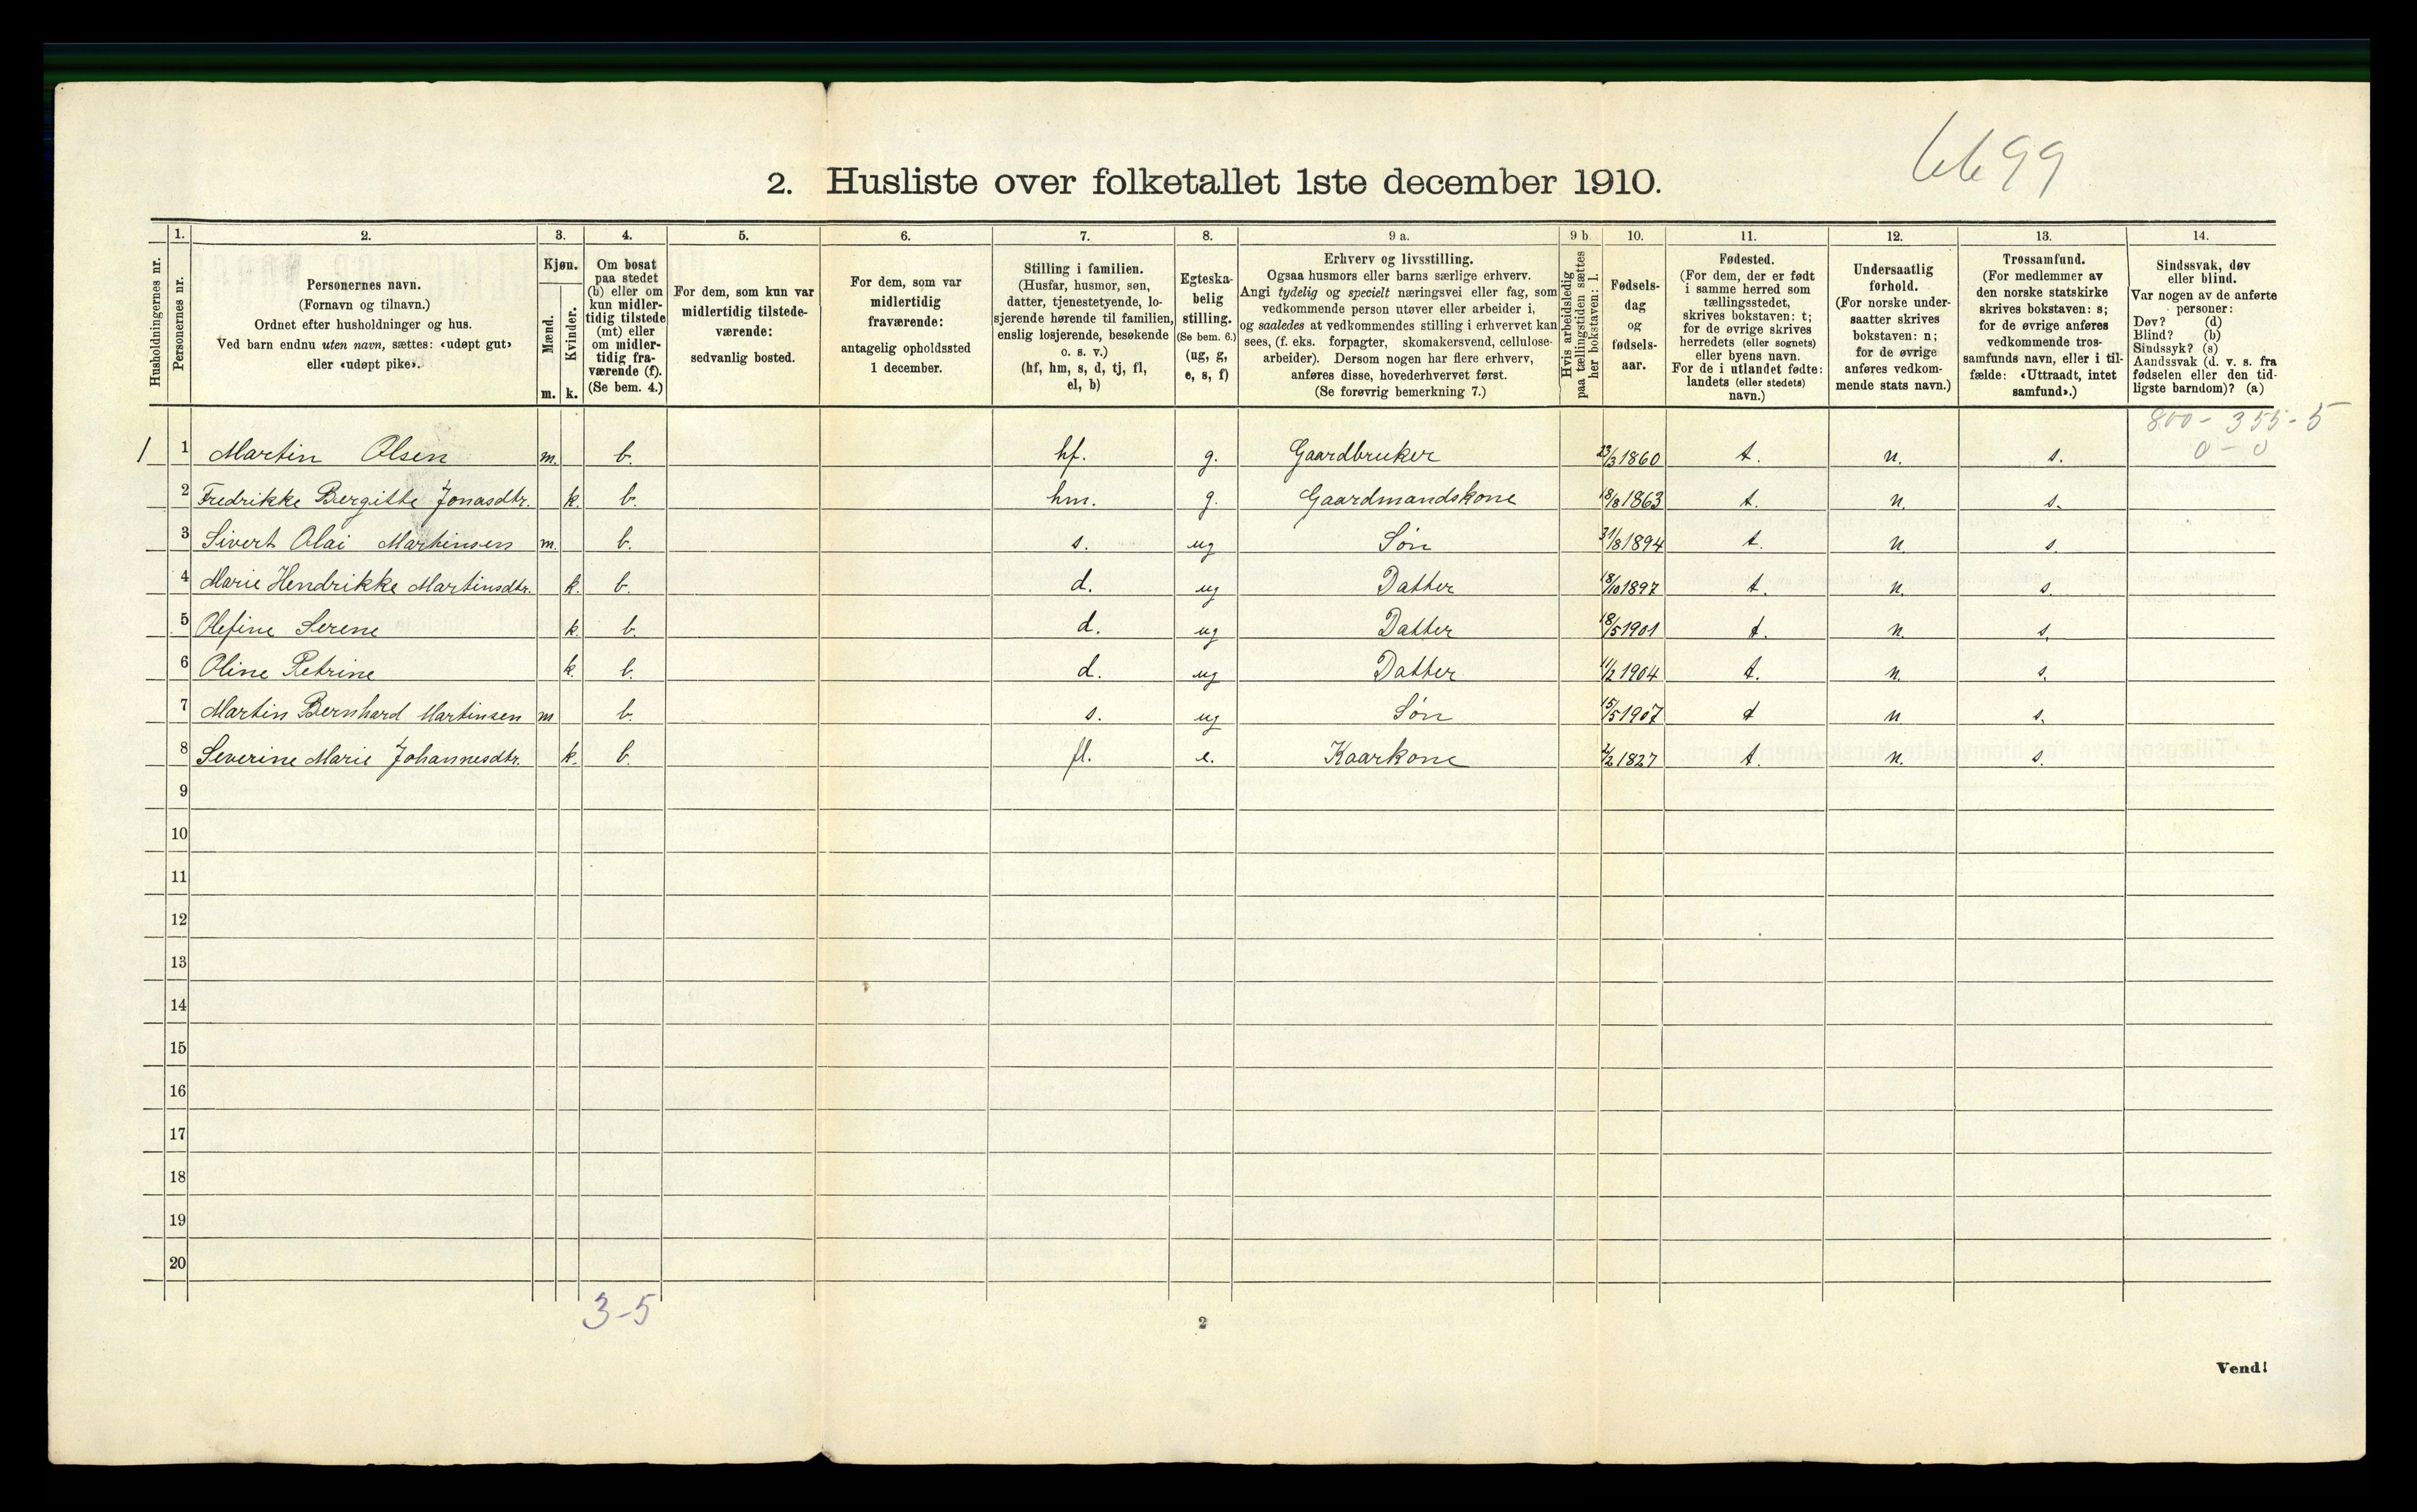 6699
2. Husliste over folketallet 1ste december 1910.
Husholdningernes nr.
1.
Personernes nr.
2.
Personernes navn.
(Fornavn og tilnavn.)
Ordnet efter husholdninger og hus.
Ved barn endnu uten navn, sættes: «udøpt gut»
eller «udøpt pike».
3.
Kjøn.
Mænd.
Kvinder.
m. k.
4.
Om bosat
paa stedet
(b) eller om
kun midler-
tidig tilstede
(mt) eller
om midler-
tidig fra-
værende (f).
(Se bem. 4.)
5.
For dem, som kun var
midlertidig tilstede-
værende:
sedvanlig bosted.
6.
For dem, som var
midlertidig
fraværende:
antagelig opholdssted
1 december.
7.
Stilling i familien.
(Husfar, husmor, søn,
datter, tjenestetyende, lo-
sjerende hørende til familien,
enslig losjerende, besøkende
o. s. v.)
(hf, hm, s, d, tj, fl,
el, b)
8.
Egteska-
belig
stilling.
(Se bem. 6.)
(ug, g,
e, s, f)
9 a.
Erhverv og livsstilling.
Ogsaa husmors eller barns særlige erhverv.
Angi tydelig og specielt næringsvei eller fag, som
vedkommende person utøver eller arbeider i,
og saaledes at vedkommendes stilling i erhvervet kan
sees, (f. eks. forpagter, skomakersvend, cellulose-
arbeider). Dersom nogen har flere erhverv,
anføres disse, hovederhvervet først.
(Se forøvrig bemerkning 7.)
9 b
Hvis arbeidsledig
paa tællingstiden sættes
her bokstaven: l.
10.
Fødsels-
dag
og
fødsels-
aar.
11.
Fødested.
(For dem, der er født
i samme herred som
tællingsstedet,
skrives bokstaven: t;
for de øvrige skrives
herredets (eller sognets)
eller byens navn.
For de i utlandet fødte:
landets (eller stedets)
navn.)
12.
Undersaatlig
forhold.
(For norske under-
saatter skrives
bokstaven: n;
for de øvrige
anføres vedkom-
mende stats navn.)
13.
Trossamfund.
(For medlemmer av
den norske statskirke
skrives bokstaven: s;
for de øvrige anføres
vedkommende tros-
samfunds navn, eller i til-
fælde: «Uttraadt, intet
samfund».)
14.
Sindssvak, døv
eller blind.
Var nogen av de anførte
personer:
Døv? (d)
Blind? (b)
Sindssyk? (s)
Aandssvak (d. v. s. fra
fødselen eller den tid-
ligste barndom)? (a)
800 - 355 - 5
0 - 0
1 1 Martin Olsen m. b. hf. g. Gaardbruker 23/3 1860 t. n. s.
2 Fredrikke Bergitte Jonasdtr. k. b. hm. g. Gaardmandskone 18/8 1863 t. n. s.
3 Sivert Olai Martinsen m. b. s. ug Søn 31/8 1894 t. n s.
4 Marie Hendrikke Martinsdtr. k. b. d. ug Datter 18/10 1897 t. n. s.
5 Olefine Serene k. b. d. ug Datter 18/5 1901 t. n. s.
6 Oline Petrine k. b. d. ug Datter 11/2 1904 t. n. s.
7 Martin Bernhard Martinsen m b. s. ug Søn 15/5 1907 t n s.
8 Severine Marie Johannesdtr. k. b. fl. e. Kaarkone 2/2 1827 t. n. s.
9
10
11
12
13
14
15
16
17
18
19
20
3-5
2
Vend!